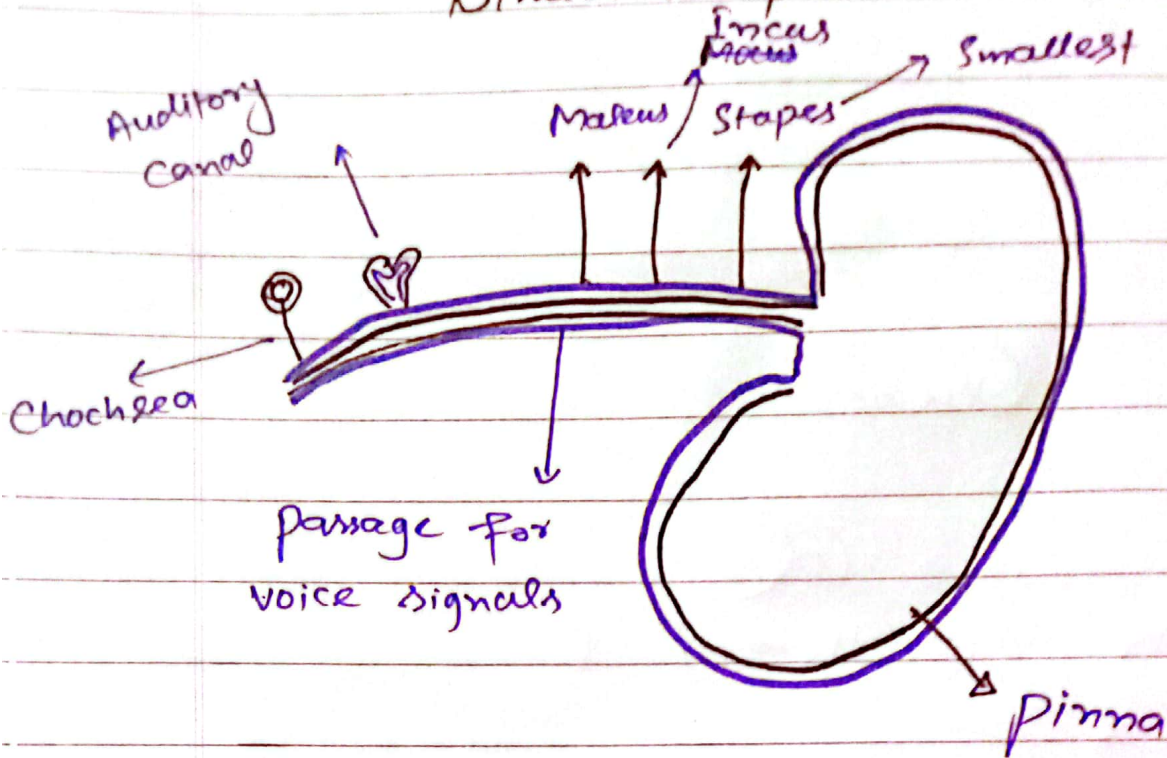 Incus
Smallest
Auditory
canal
Maleus
Stapes
Chochlea
Passage for
voice signals
Pinna